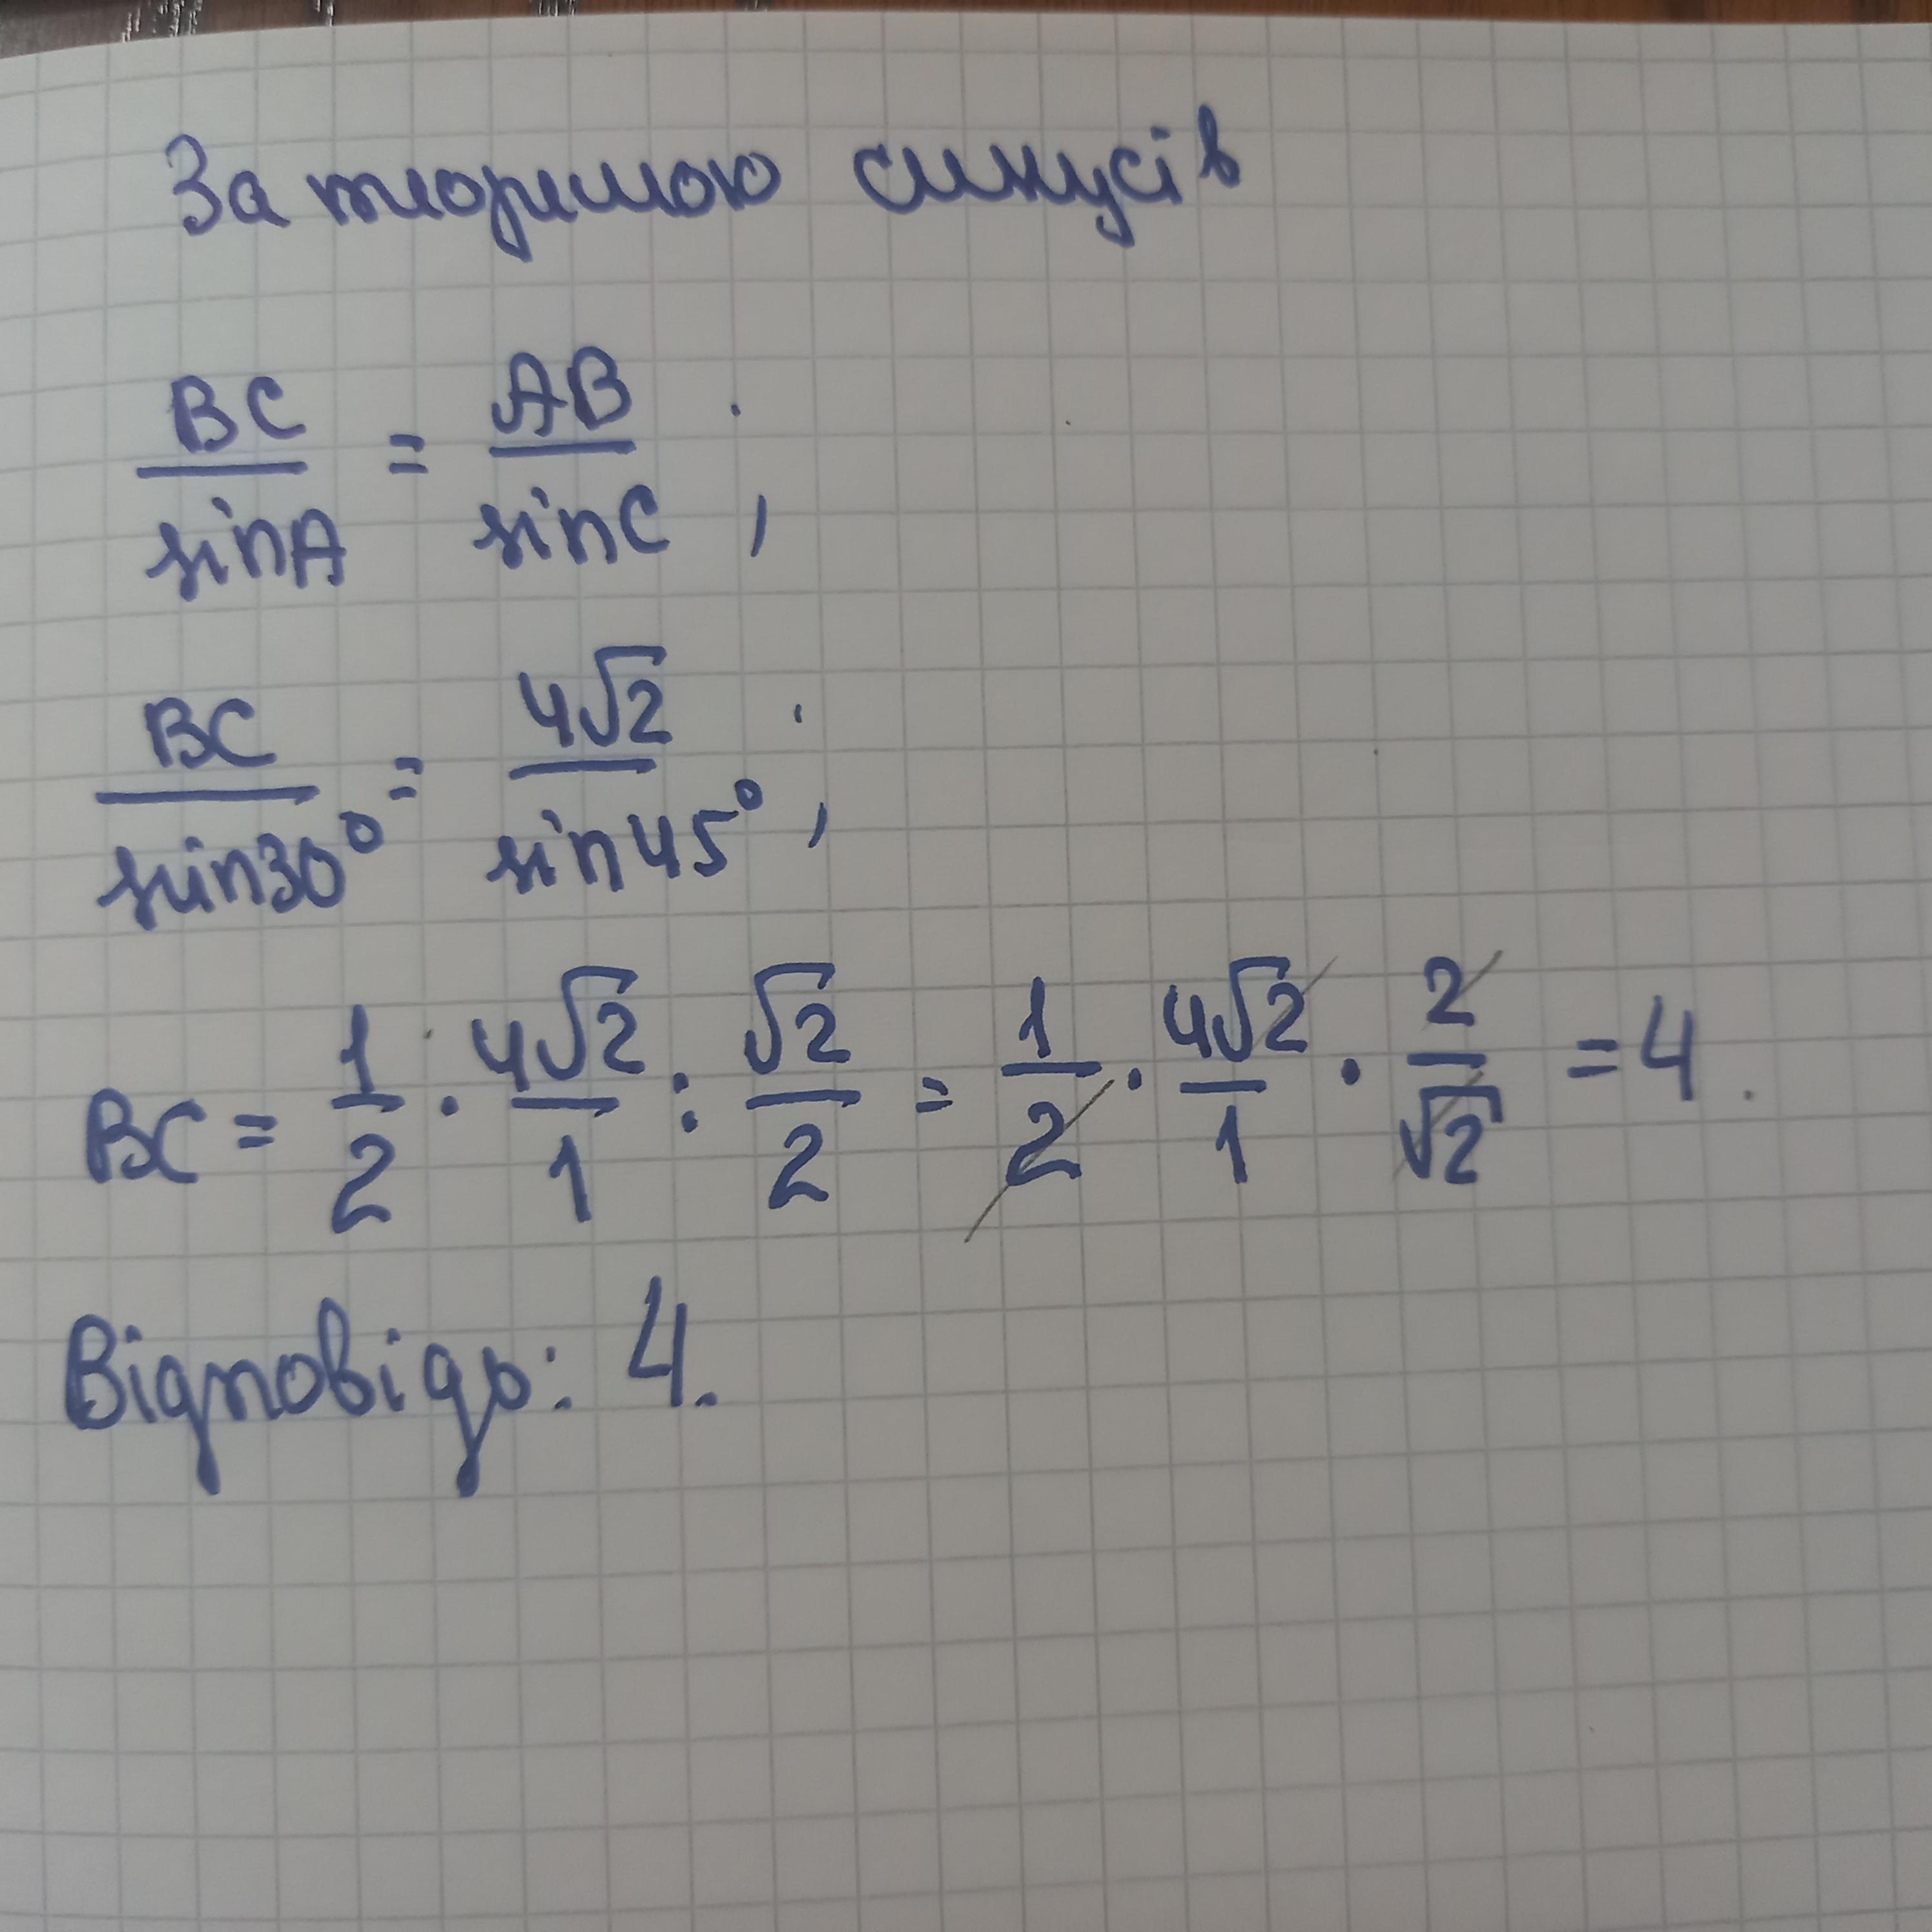 За теоремою синусів
BC/sinA = AB/sinC;
BC/sin30° = 4√2/sin45°;
BC = 1/2 · 4√2/1 : √2/2 = 1/2 · 4√2/1 · 2/√2 = 4.
Відповідь: 4.